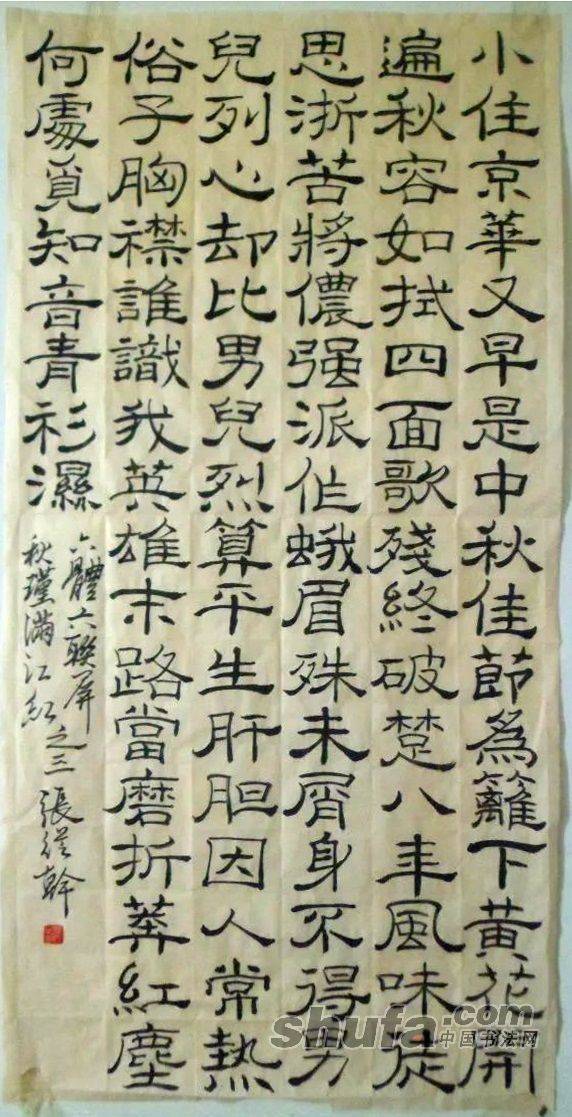 小住京華又早是中秋佳節爲籬下黃花開
遍秋容如拭四面歌殘終破楚八年風味徒
思浙苦將儂强派作蛾眉殊未屑身不得男
兒列心却比男兒烈算平生肝胆因人常熱
俗子胸襟誰識我英雄末路當磨折莽紅塵
何處覓知音青衫濕
六體六聯屏之三
秋瑾滿江紅
張從幹
shufa.com
中国书法网